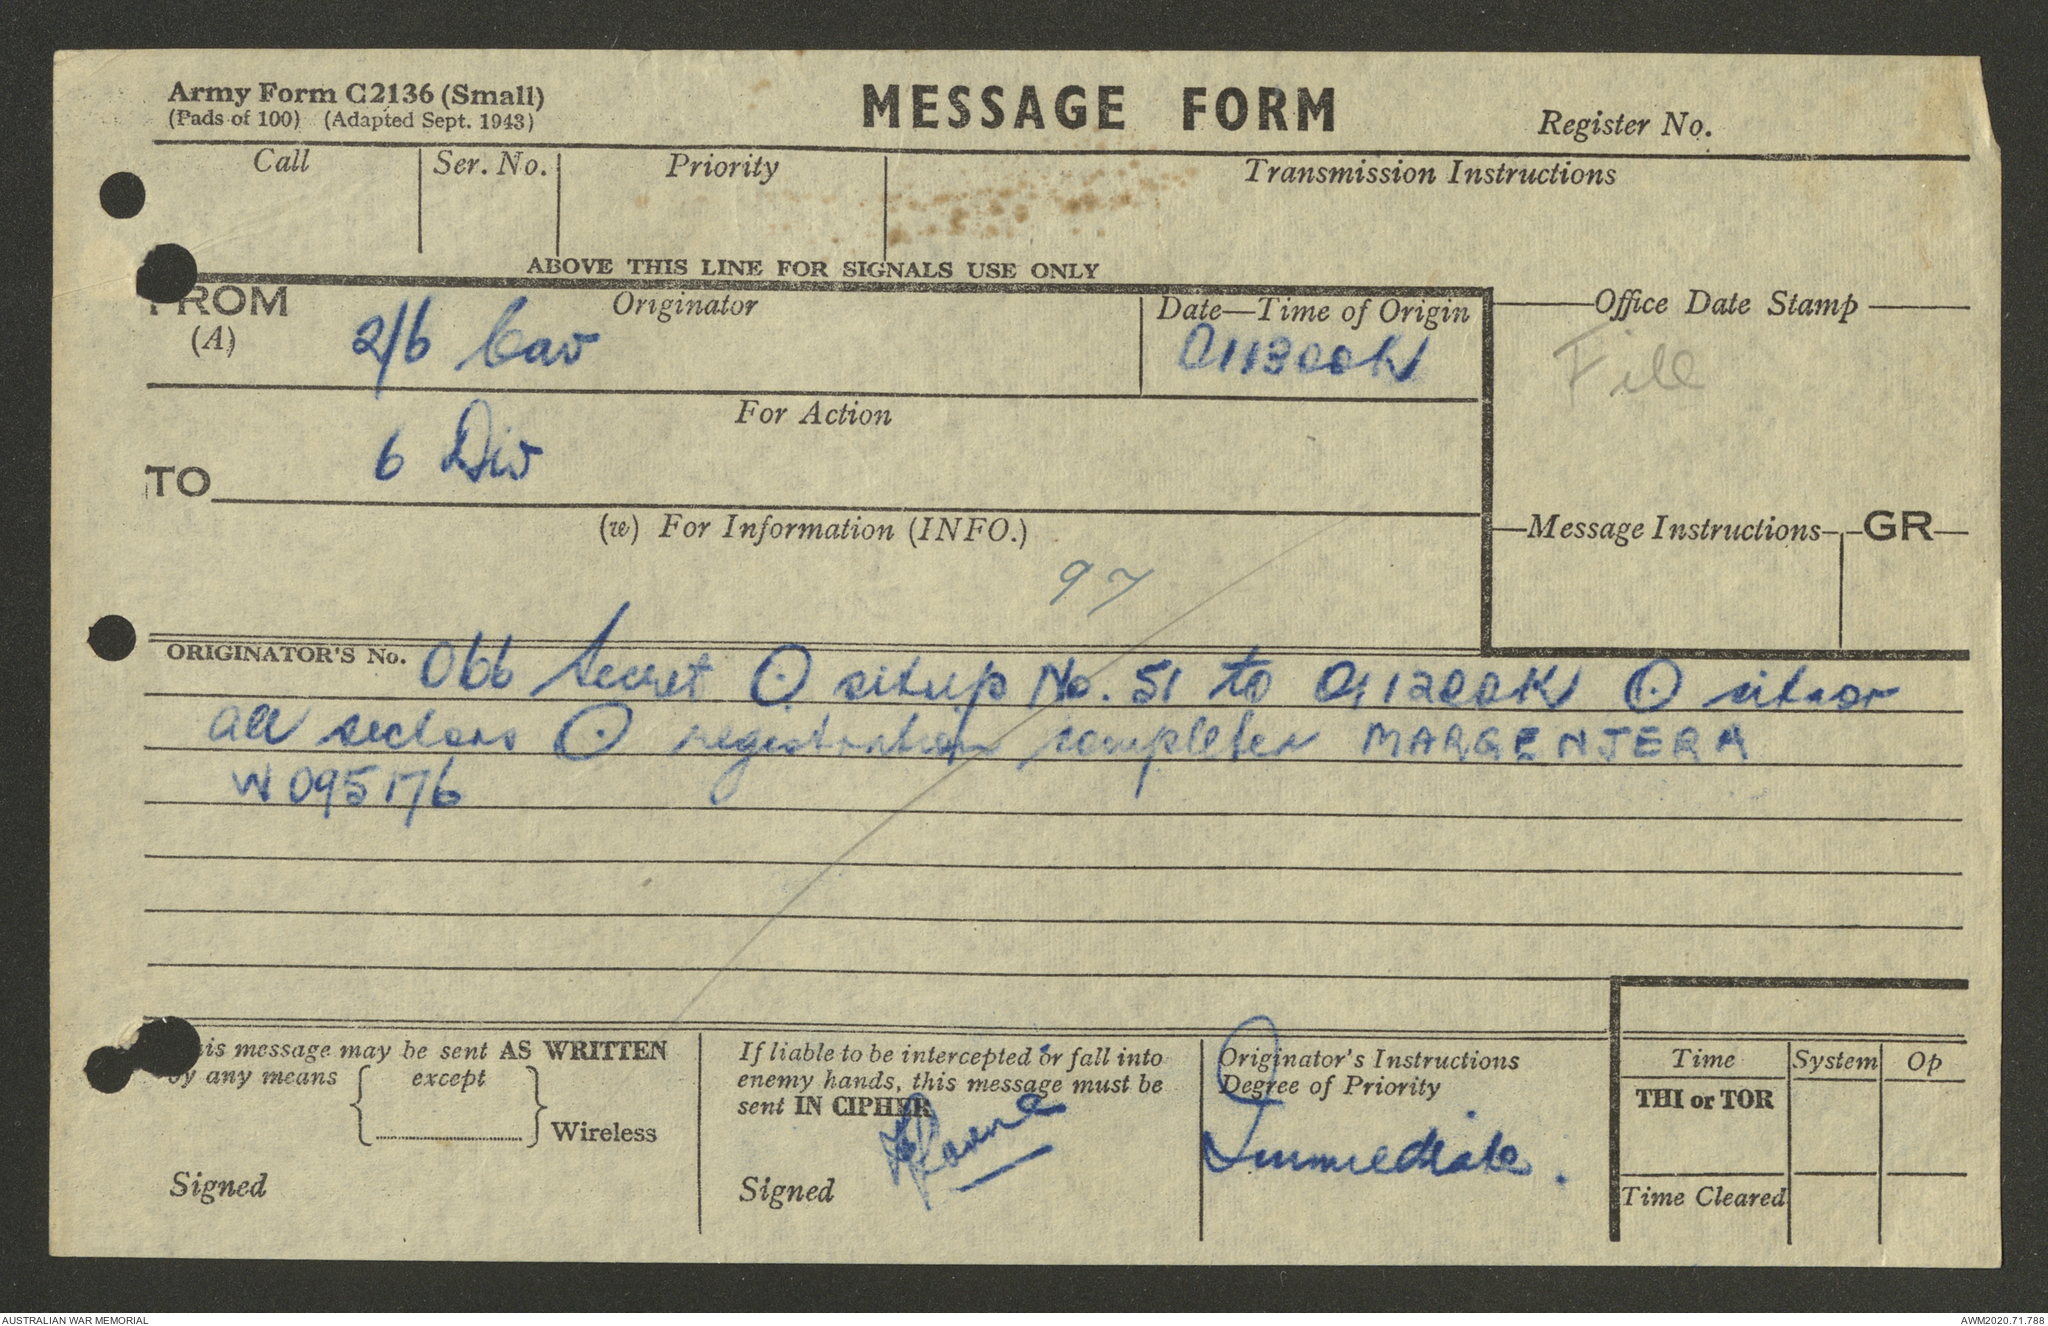 Army Form C2136 (Small)
(Pads of 100) (Adapted Sept. 1943)
MESSAGE FORM
Register No.
Call
Ser. No.
Priority
Transmission Instructions
ABOVE THIS LINE FOR SIGNALS USE ONLY
FROM
(A)
Originator
2/6 Cav
Date—Time of Origin
011300K
Office Date Stamp
File
For Action
6 Div
TO
(w) For Information (INFO.)
97
Message Instructions
GR
ORIGINATOR'S No. 066 Secret ⊙ situp No. 51 to 011200K ⊙ sitnor
all sectors ⊙ registration completer MARGENJERA
W 095176
This message may be sent AS WRITTEN
by any means except
Wireless
Signed
If liable to be intercepted or fall into
enemy hands, this message must be
sent IN CIPHER
Signed
Originator's Instructions
Degree of Priority
Immediate.
Time
System
Op
THI or TOR
Time Cleared
AUSTRALIAN WAR MEMORIAL
AWM2020.71.788